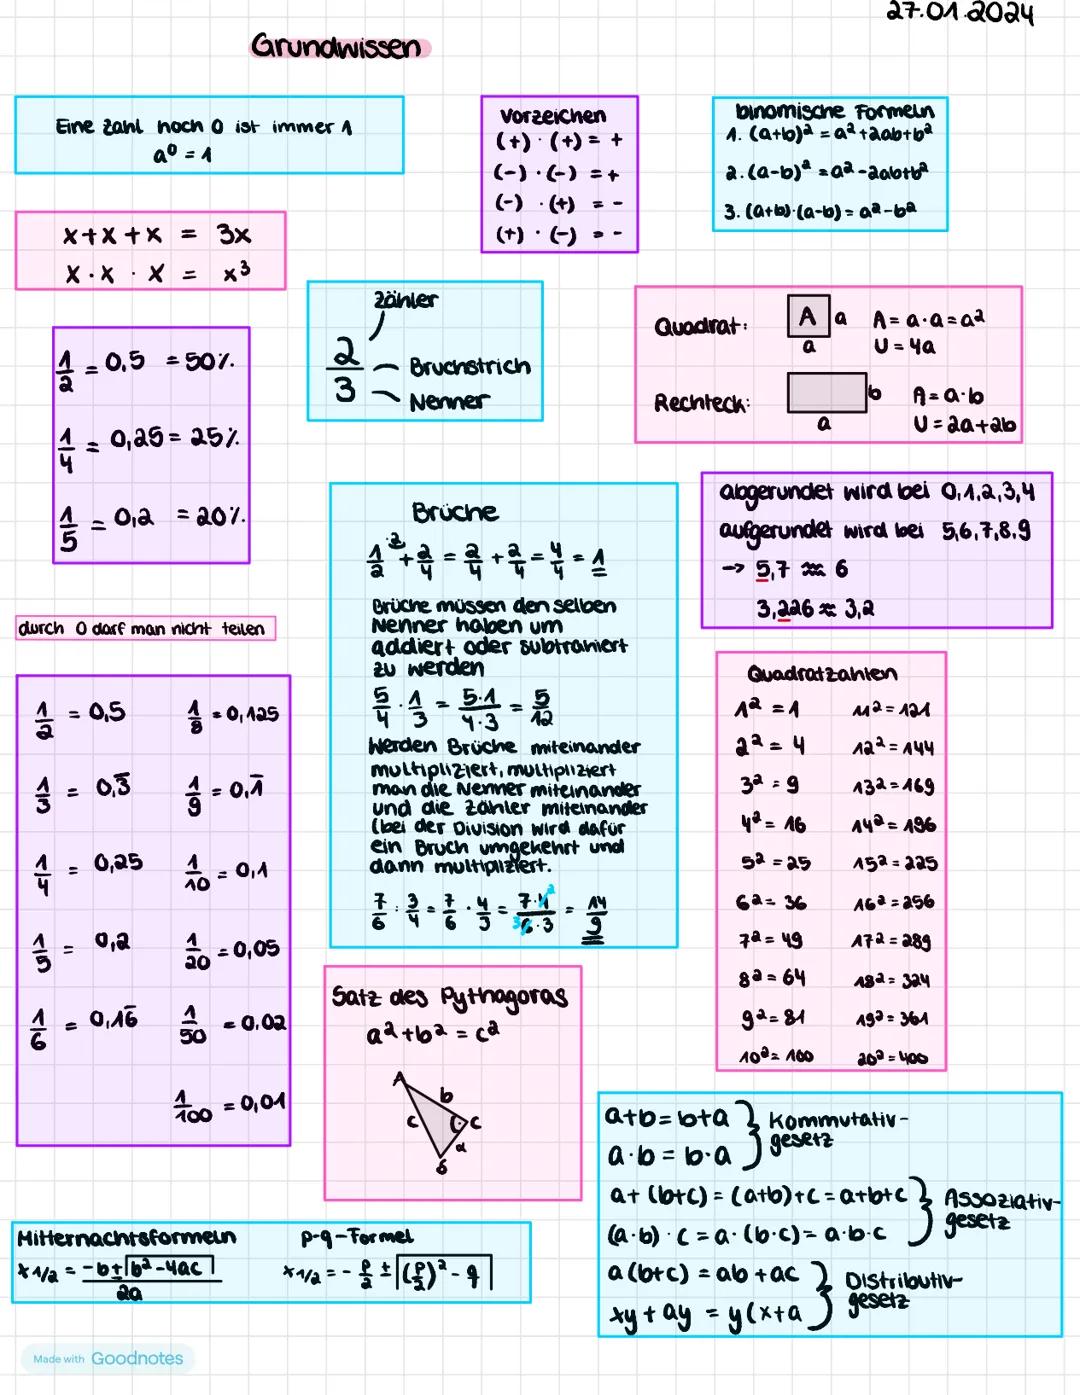 27.01.2024
Grundwissen
Eine Zahl hoch 0 ist immer 1
a⁰ = 1
Vorzeichen
(+) · (+) = +
(-) · (-) = +
(-) · (+) = -
(+) · (-) = -
binomische Formeln
1. (a+b)² = a²+2ab+b²
2. (a-b)² = a²-2ab+b²
3. (a+b)·(a-b) = a²-b²
x+x+x = 3x
x·x·x = x³
Zähler
2/3
Bruchstrich
Nenner
Quadrat: A a A = a·a = a²
a U = 4a
Rechteck: b A = a·b
a U = 2a+2b
1/2 = 0,5 = 50%
1/4 = 0,25 = 25%
1/5 = 0,2 = 20%
Brüche
1/2 ·2 + 2/4 = 2/4 + 2/4 = 4/4 = 1
Brüche müssen den selben
Nenner haben um
addiert oder subtrahiert
zu werden
5/4 · 1/3 = 5·1/4·3 = 5/12
Werden Brüche miteinander
multipliziert, multipliziert
man die Nenner miteinander
und die Zähler miteinander
(bei der Division wird dafür
ein Bruch umgekehrt und
dann multipliziert.
7/6 : 3/4 = 7/6 · 4/3 = 7·4 2/3 6·3 = 14/9
abgerundet wird bei 0,1,2,3,4
aufgerundet wird bei 5,6,7,8,9
→ 5,7 ≈ 6
3,226 ≈ 3,2
durch 0 darf man nicht teilen
1/2 = 0,5 1/8 = 0,125
1/3 = 0,3̅ 1/9 = 0,1̅
1/4 = 0,25 1/10 = 0,1
1/5 = 0,2 1/20 = 0,05
1/6 = 0,16̅ 1/50 = 0.02
1/100 = 0,01
Quadratzahlen
1² = 1 11² = 121
2² = 4 12² = 144
3² = 9 13² = 169
4² = 16 14² = 196
5² = 25 15² = 225
6² = 36 16² = 256
7² = 49 17² = 289
8² = 64 18² = 324
9² = 81 19² = 361
10² = 100 20² = 400
Satz des Pythagoras
a²+b² = c²
A
b
c C
a
B
a+b = b+a } Kommutativ-
a·b = b·a gesetz
a+(b+c) = (a+b)+c = a+b+c } Assoziativ-
(a·b)·c = a·(b·c) = a·b·c gesetz
a(b+c) = ab+ac } Distributiv-
xy+ay = y(x+a gesetz
Mitternachtsformeln p-q-Formel
x1/2 = -b±√b²-4ac / 2a x1/2 = - p/2 ± √(p/2)² - q
Made with Goodnotes